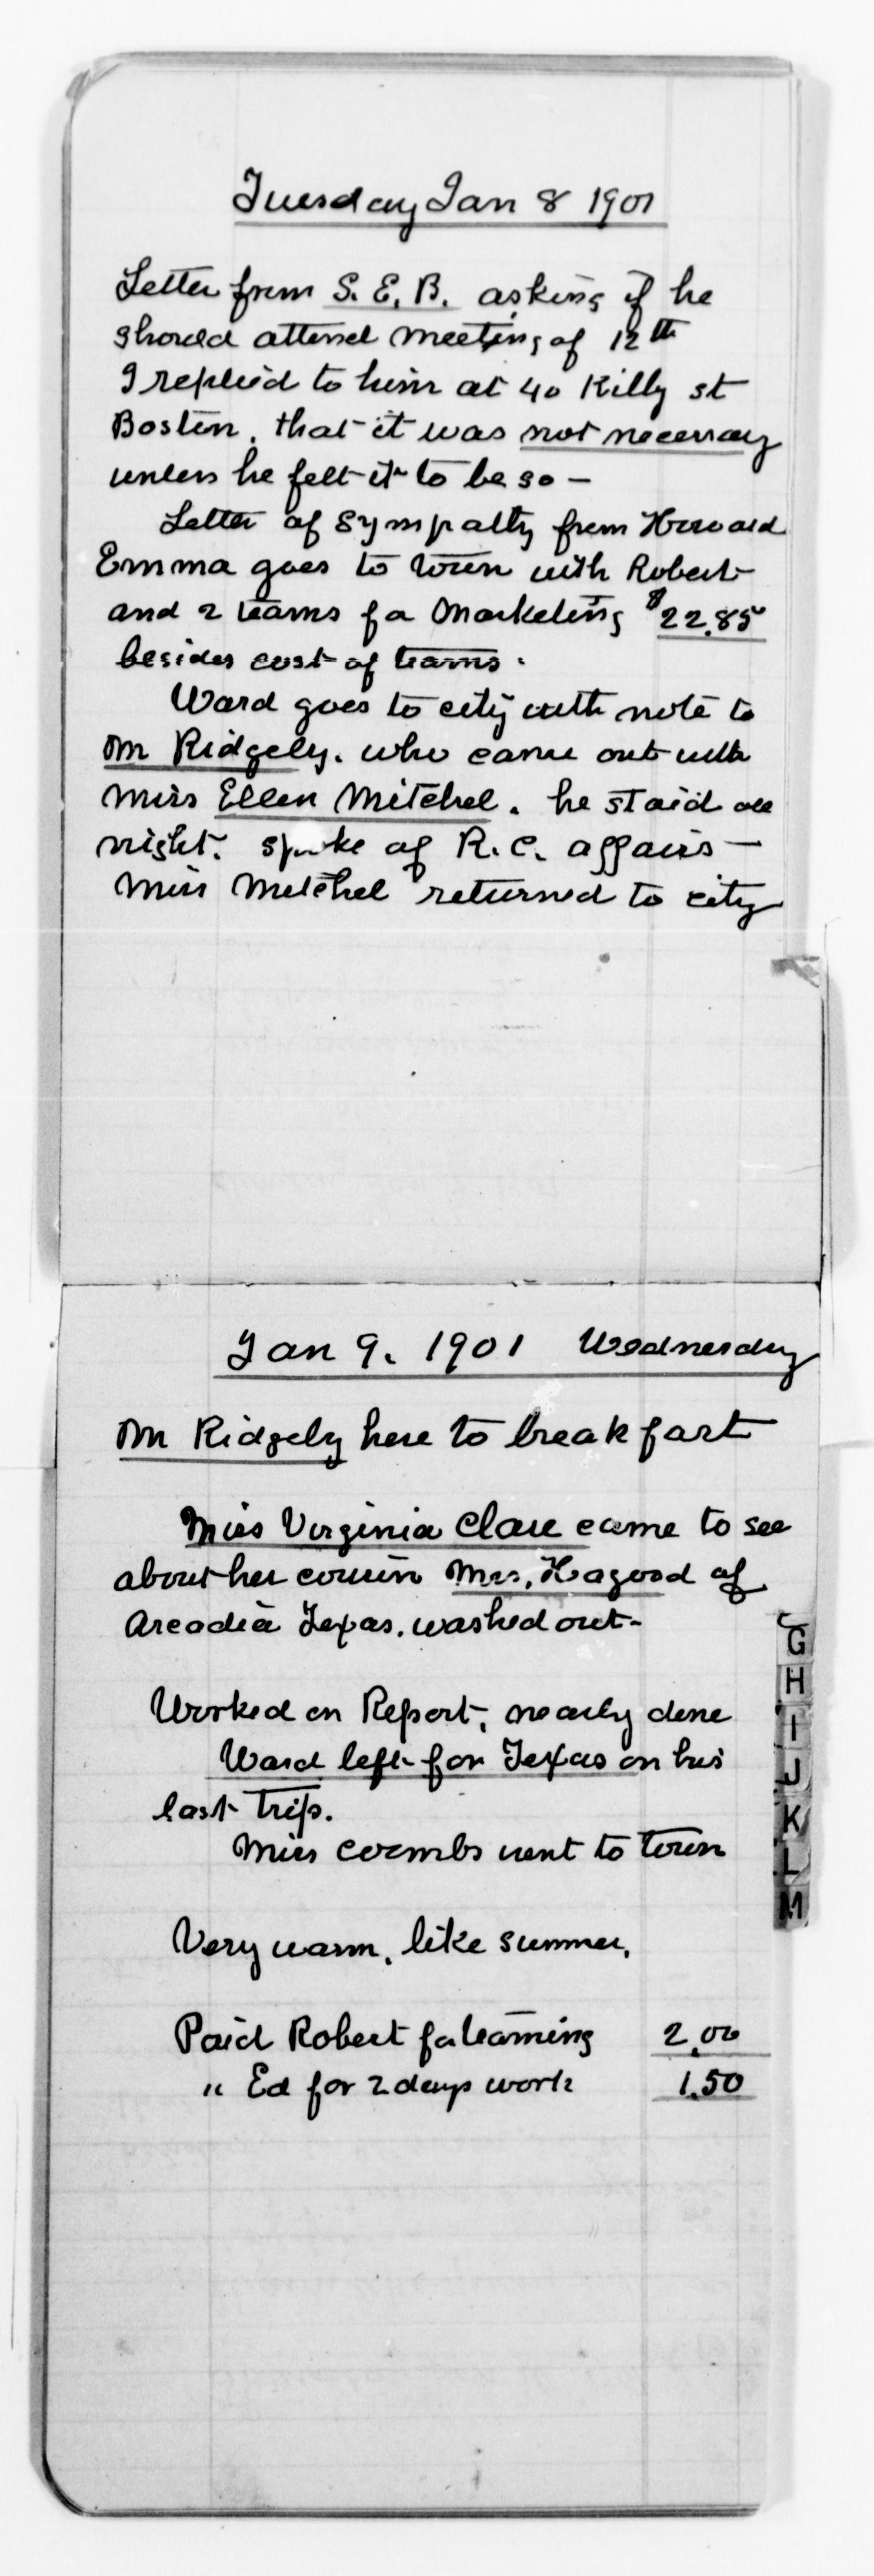 Tuesday Jan 8 1901
Letter from S. E. B. asking if he
should attend meeting of 12th
I replied to him at 40 Kilby st
Boston, that it was not necessary
unless he felt it to be so —
Letter of sympathy from Howard
Emma goes to town with Robert
and 2 teams for Marketing $22.85
besides cost of teams.
Ward goes to city with note to
Mr Ridgely. who came out with
Miss Ellen Mitchel. he staid all
night. spoke of R. C. affairs —
Miss Mitchel returned to city
Jan 9. 1901 Wednesday
Mr Ridgely here to breakfast
Miss Virginia Clare came to see
about her cousin Mrs. Hagood of
Arcadia Texas. washed out -
Worked on Report, nearly done
Ward left for Texas on his
last trip.
Miss Coombs went to town
Very warm, like summer.
Paid Robert for teaming 2.00
" Ed for 2 days work 1.50
G
H
I
J
K
L
M